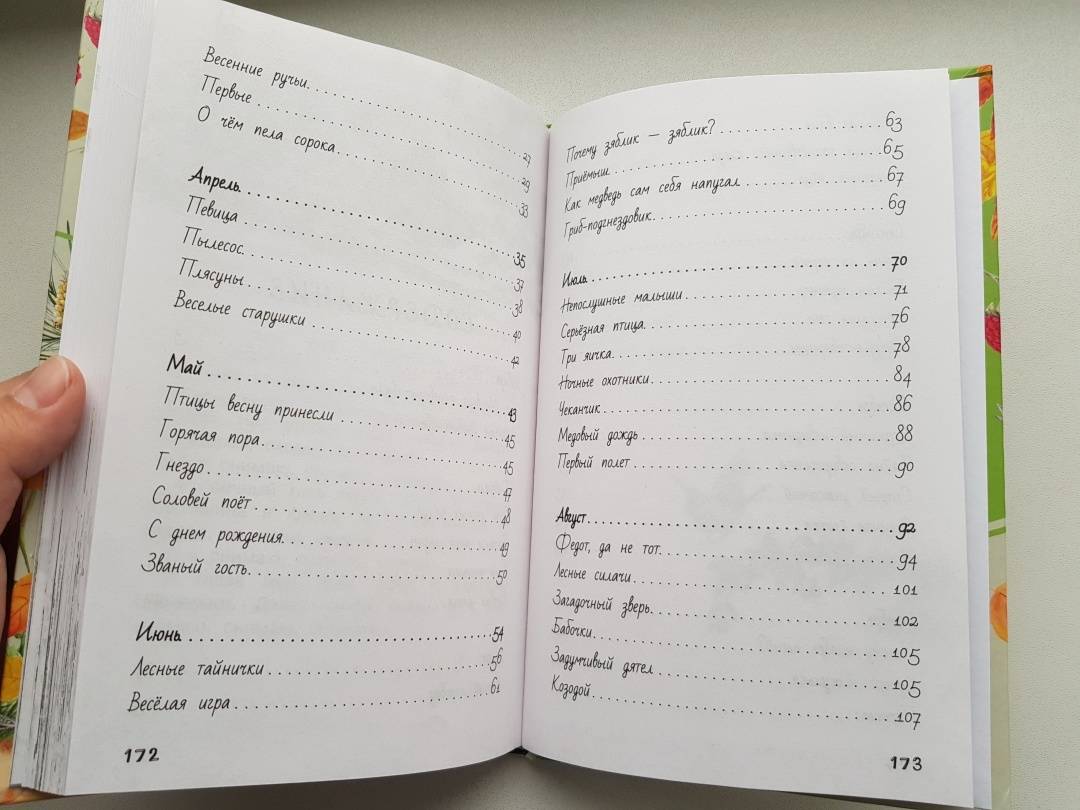 Весенние ручьи 27
Первые 29
О чём пела сорока 33
Апрель 35
Певица 37
Пылесос 38
Плясуны 40
Веселые старушки 42
Май 43
Птицы весну принесли 45
Горячая пора 45
Гнездо 47
Соловей поёт 48
С днем рождения 49
Званый гость 50
Июнь 54
Лесные тайнички 56
Весёлая игра 61
172
Почему зяблик — зяблик? 63
Приёмыш 65
Как медведь сам себя напугал 67
Гриб-подгнездовик 69
Июль 70
Непослушные малыши 71
Серьёзная птица 76
Три яичка 78
Ночные охотники 84
Чеканчик 86
Медовый дождь 88
Первый полет 90
Август 92
Федот, да не тот 94
Лесные силачи 101
Загадочный зверь 102
Бабочки 105
Задумчивый дятел 105
Козодой 107
173